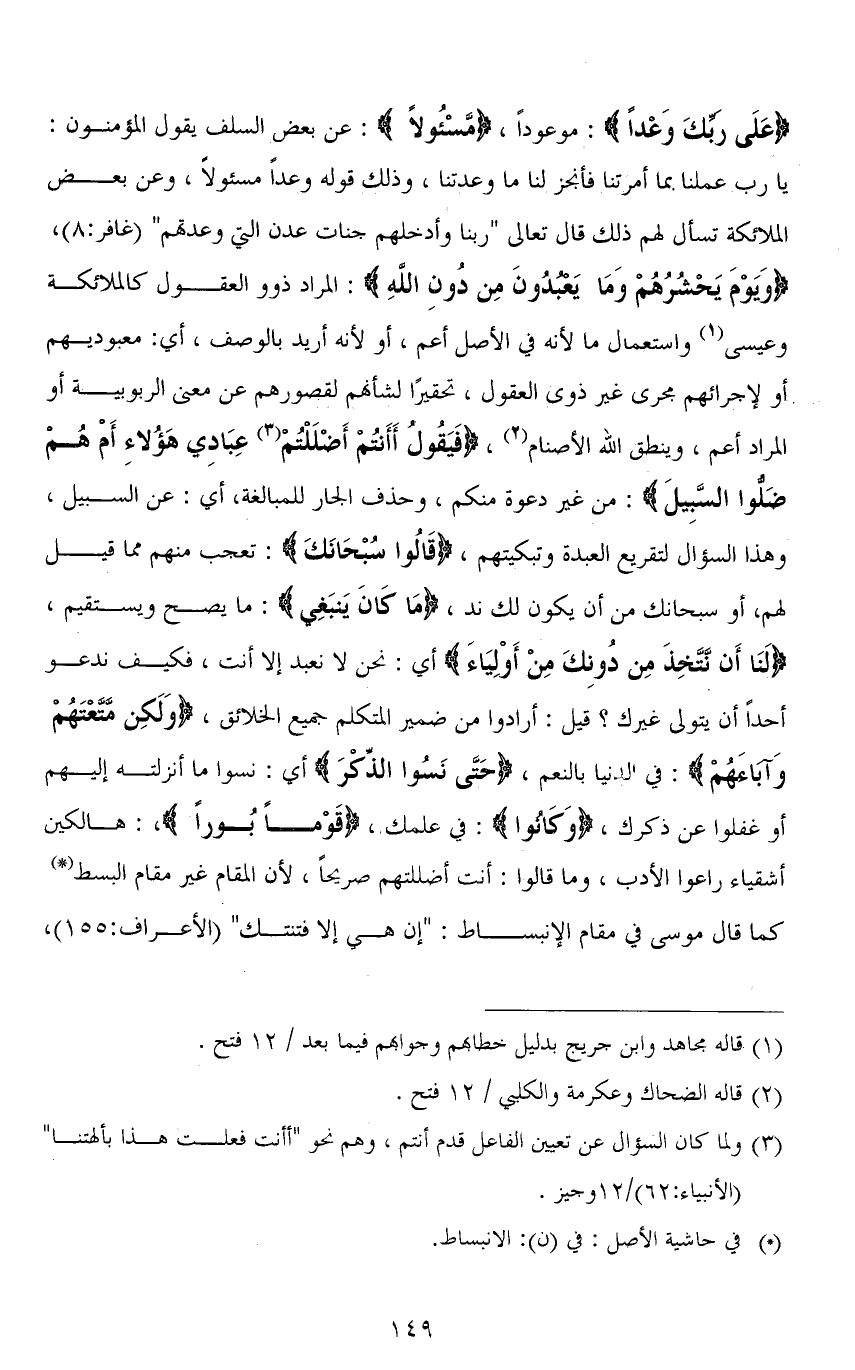 ﴿عَلَى رَبِّكَ وَعْداً﴾ : موعوداً ، ﴿مَّسْئُولاً﴾ : عن بعض السلف يقول المؤمنون :
يا رب عملنا بما أمرتنا فأنجز لنا ما وعدتنا ، وذلك قوله وعداً مسئولاً ، وعن بعض
الملائكة تسأل لهم ذلك قال تعالى "ربنا وأدخلهم جنات عدن التي وعدتهم" (غافر:٨)،
﴿وَيَوْمَ يَحْشُرُهُمْ وَمَا يَعْبُدُونَ مِن دُونِ اللَّهِ﴾ : المراد ذوو العقول كالملائكة
وعيسى(١) واستعمال ما لأنه في الأصل أعم ، أو لأنه أريد بالوصف ، أي: معبوديهم
أو لإجرائهم مجرى غير ذوى العقول ، تحقيرًا لشأنهم لقصورهم عن معنى الربوبية أو
المراد أعم ، وينطق الله الأصنام(٢) ، ﴿فَيَقُولُ أَأَنتُمْ أَضْلَلْتُمْ(٣) عِبَادِي هَؤُلاءِ أَمْ هُمْ
ضَلُّوا السَّبِيلَ﴾ : من غير دعوة منكم ، وحذف الجار للمبالغة، أي : عن السبيل ،
وهذا السؤال لتقريع العبدة وتبكيتهم ، ﴿قَالُوا سُبْحَانَكَ﴾ : تعجب منهم مما قيل
لهم، أو سبحانك من أن يكون لك ند ، ﴿مَا كَانَ يَنبَغِي﴾ : ما يصح ويستقيم ،
﴿لَنَا أَن نَّتَّخِذَ مِن دُونِكَ مِنْ أَوْلِيَاءَ﴾ أي : نحن لا نعبد إلا أنت ، فكيف ندعو
أحداً أن يتولى غيرك ؟ قيل : أرادوا من ضمير المتكلم جميع الخلائق ، ﴿وَلَكِن مَّتَّعْتَهُمْ
وَآبَاءَهُمْ﴾ : في الدنيا بالنعم ، ﴿حَتَّى نَسُوا الذِّكْرَ﴾ أي : نسوا ما أنزلته إليهم
أو غفلوا عن ذكرك ، ﴿وَكَانُوا﴾ : في علمك ، ﴿قَوْماً بُوراً﴾، : هالكين
أشقياء راعوا الأدب ، وما قالوا : أنت أضللتهم صريحاً ، لأن المقام غير مقام البسط(*)
كما قال موسى في مقام الإنبساط : "إن هي إلا فتنتك" (الأعراف:١٥٥)،
(١) قاله مجاهد وابن جريج بدليل خطاهم وجواهم فيما بعد / ١٢ فتح .
(٢) قاله الضحاك وعكرمة والكلبي / ١٢ فتح .
(٣) ولما كان السؤال عن تعيين الفاعل قدم أنتم ، وهم نحو "أأنت فعلت هذا بألهتنا"
(الأنبياء:٦٢)/١٢وجيز .
(*) في حاشية الأصل : في (ن): الانبساط.
١٤٩